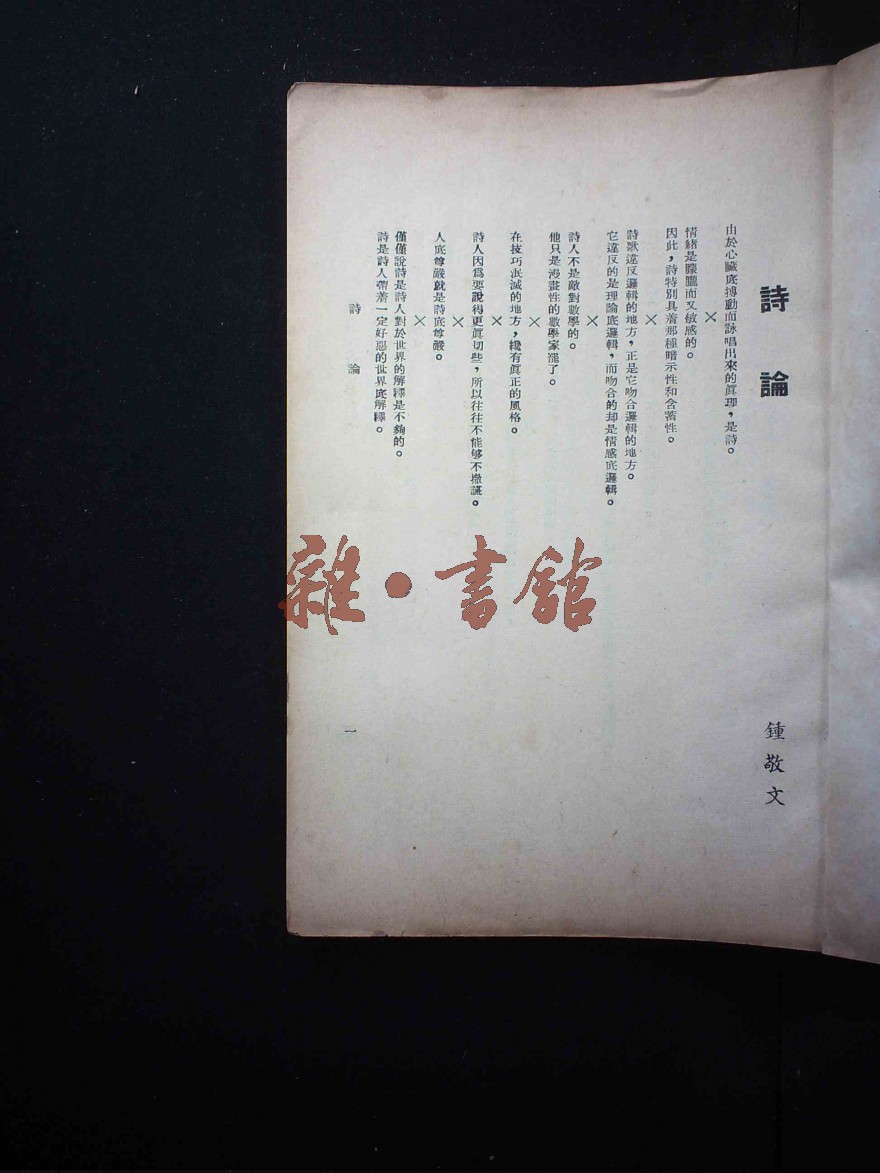 詩論
鍾敬文
由於心臟底搏動而詠唱出來的眞理，是詩。
×
情緒是朦朧而又敏感的。
因此，詩特別具着那種暗示性和含蓄性。
×
詩歌違反邏輯的地方，正是它吻合邏輯的地方。
它違反的是理論底邏輯，而吻合的却是情感底邏輯。
×
詩人不是敵對數學的。
他只是漫畫性的數學家罷了。
×
在技巧泯滅的地方，纔有眞正的風格。
×
詩人因爲要說得更眞切些，所以往往不能够不撒謊。
×
人底尊嚴就是詩底尊嚴。
×
僅僅說詩是詩人對於世界的解釋是不夠的。
詩是詩人帶着一定好惡的世界底解釋。
詩論
一
雜·書館